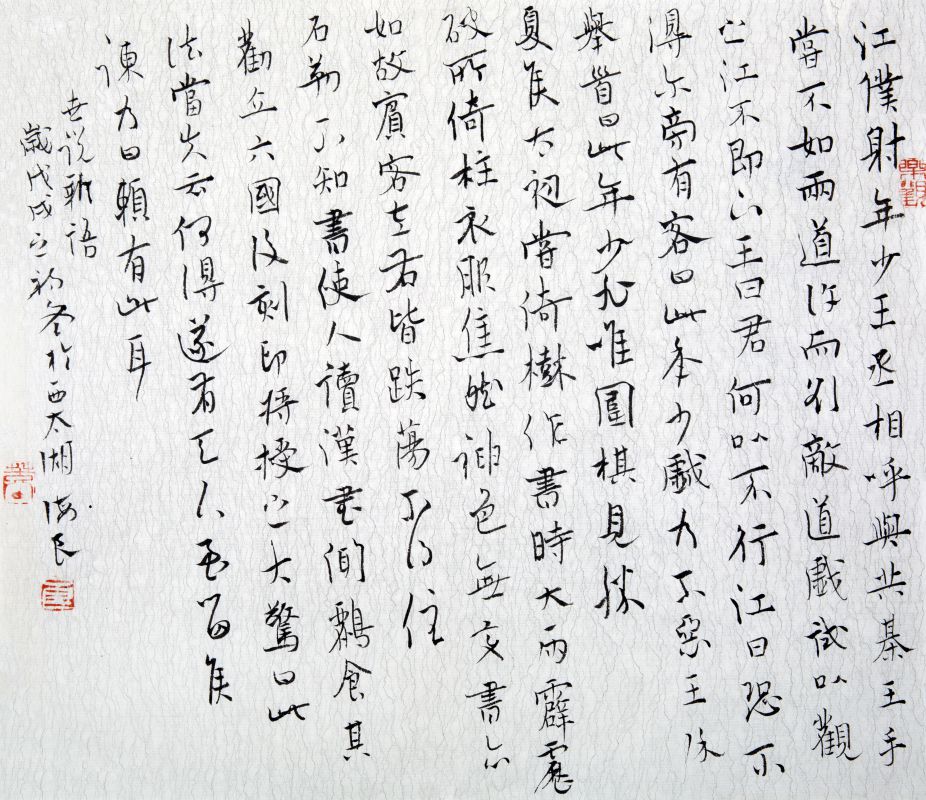 江僕射年少王丞相呼與共棊王手
嘗不如兩道許而欲敵道戲試以觀
之江不即下王曰君何以不行江曰恐不
得尔旁有客曰此年少戲乃不惡王徐
舉首曰此年少非唯圍棋見勝
夏侯太初嘗倚樹作書時大雨霹靂
破所倚柱衣服焦然神色無変書亦
如故賓客左右皆跌蕩不得住
石勒不知書使人讀漢書聞酈食其
勸立六國後刻印將授之大驚曰此
法當失云何得遂有天下至留侯
諫乃曰賴有此耳
世说新語
歲戊戌之初冬於西太湖 海民